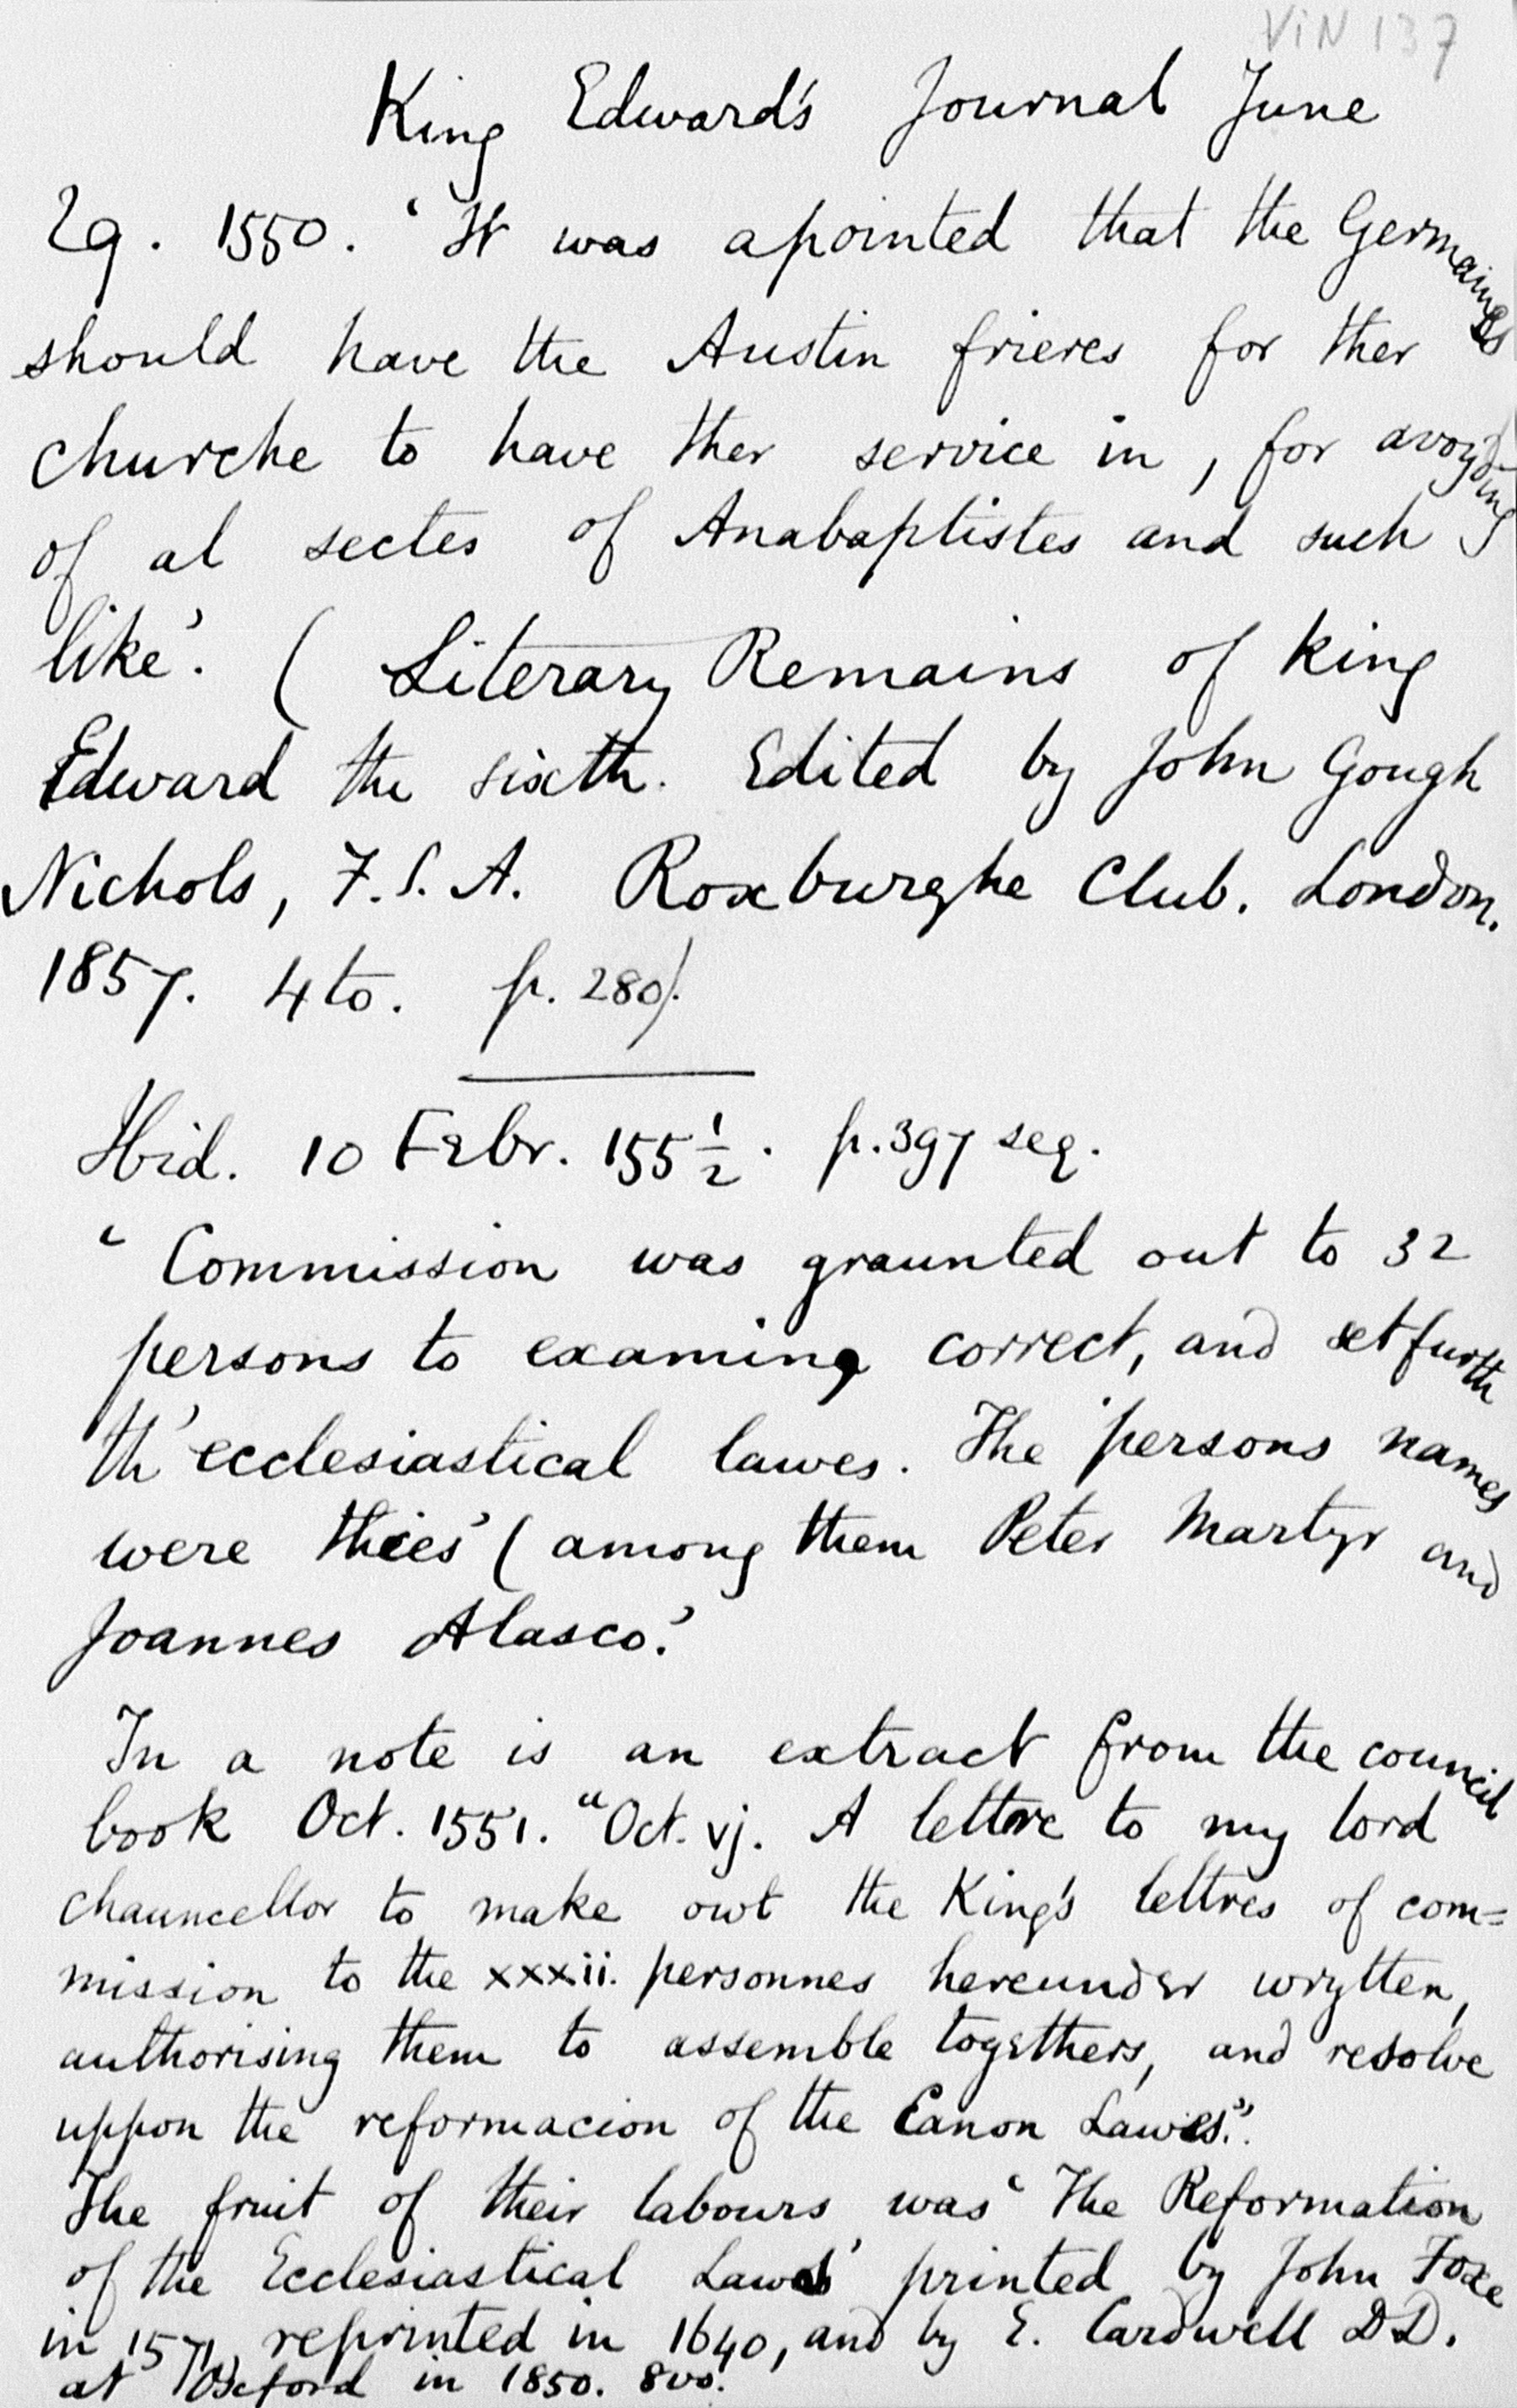 ViN 137
King Edward's Journal June
29. 1550. 'It was apointed that the Germaines
should have the Austin frieres for ther
churche to have ther service in, for avoyding
of al sectes of Anabaptistes and such
like'. (Literary Remains of king
Edward the sixth. Edited by John Gough
Nichols, F.S.A. Roxburghe Club. London.
1857. 4to. p. 280).
Ibid. 10 Febr. 155 1/2. p. 397 seq.
'Commission was graunted out to 32
persons to examine, correct, and set furth
th' ecclesiastical lawes. The persons names
were thies' (among them Peter Martyr and
Joannes Alasco.'
In a note is an extract from the council
book Oct. 1551. "Oct. vj. A lettre to my lord
chauncellor to make owt the King's lettres of com=
mission to the xxxii. personnes hereunder wrytten,
authorising them to assemble togethers, and resolve
uppon the reformacion of the Canon Lawes.".
The fruit of their labours was 'The Reformation
of the Ecclesiastical Laws' printed by John Foxe
in 1571, reprinted in 1640, and by E. Cardwell D.D.
at Oxford in 1850. 8vo.